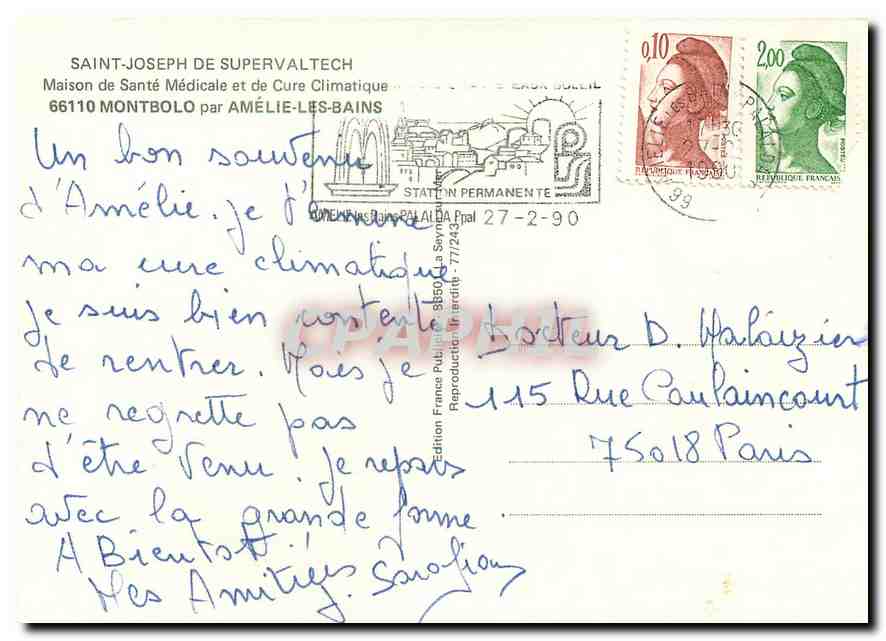 SAINT-JOSEPH DE SUPERVALTECH
Maison de Santé Médicale et de Cure Climatique
66110 MONTBOLO par AMÉLIE-LES-BAINS
EAUX SOLEIL
STATION PERMANENTE
AMELIE les Bains PALALDA Ppal 27-2-90
0,10
REPUBLIQUE FRANÇAISE
2,00
POSTES
REPUBLIQUE FRANÇAISE
Un bon souvenu
d'Amélie. je termine
ma cure climatique
je suis bien contente
de rentrer. Mais je
ne regrette pas
d'être venu. je repars
avec la grande forme
A Bientot!
Mes Amitiés.
Edition France Publicité - 83500 La Seyne-sur-Mer
Reproduction Interdite - 77/243
CPAPHIL
Docteur D. Halaizier
115 Rue Caulaincourt
75018 Paris